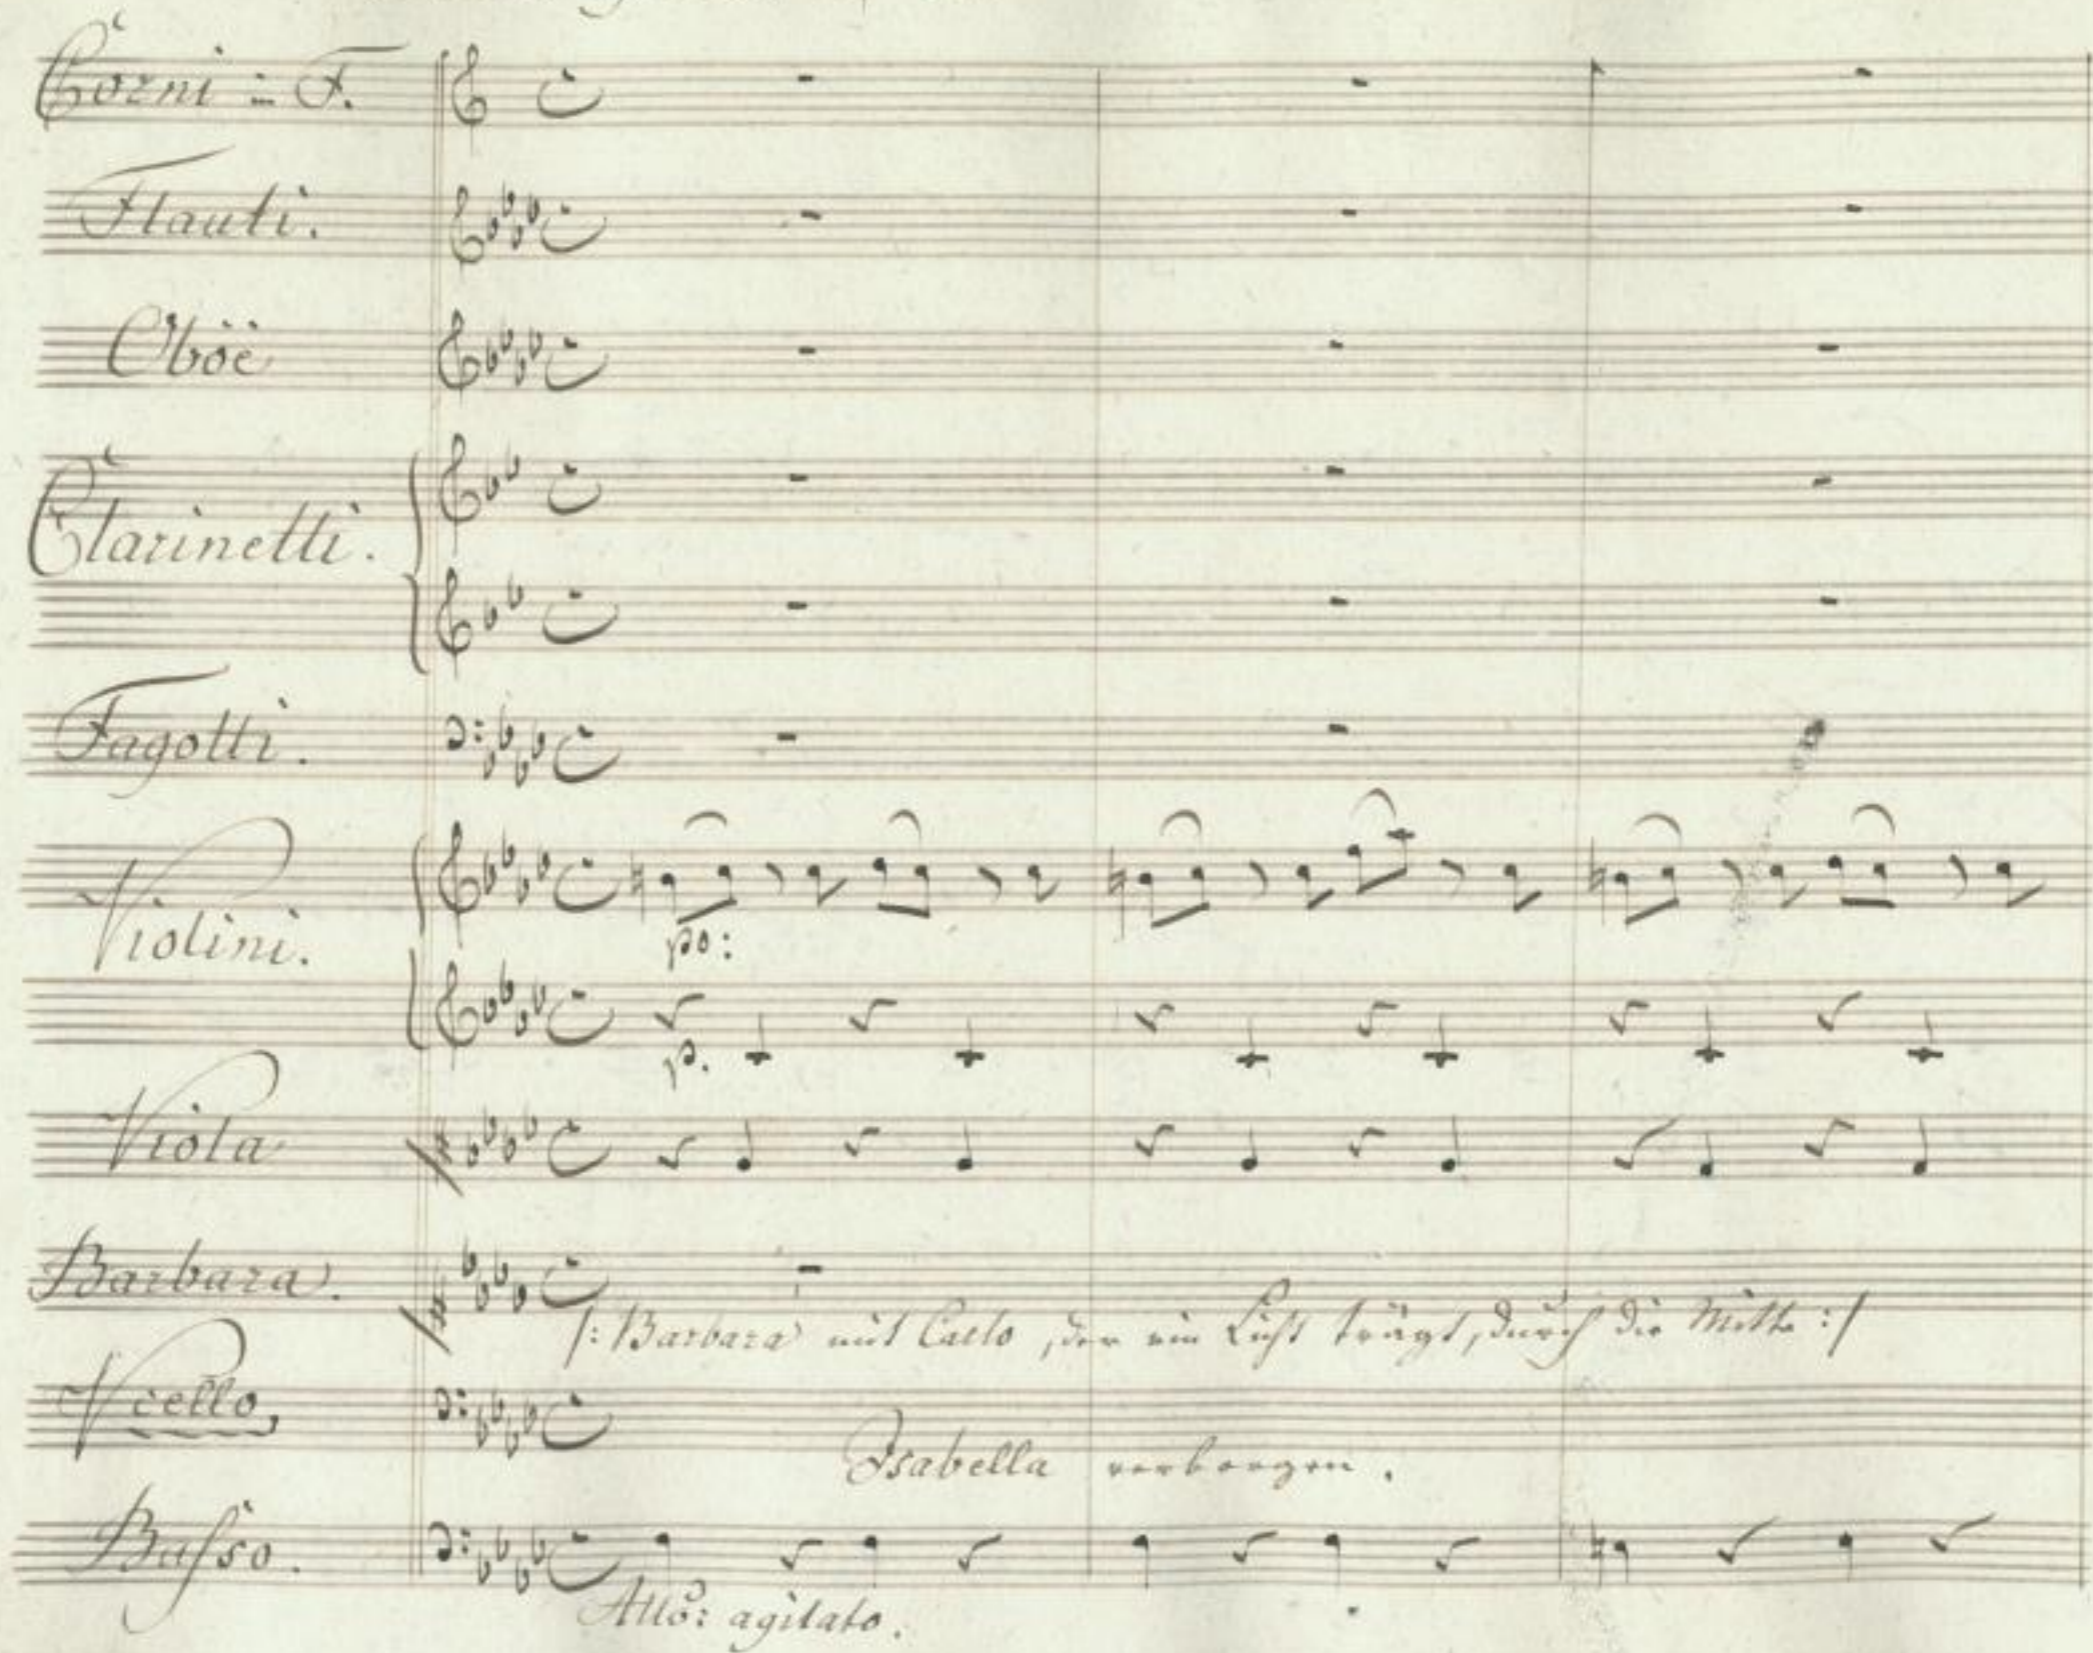 Corni in F.
Flauti.
Oböè
Clarinetti.
Fagotti.
Violini.
po:
p.
Viola
Barbara.
/: Barbara mit Carlo, der ein Licht trägt, durch die Mitte :/
Vcello,
Isabella verborgen.
Basso.
Allo: agitato.